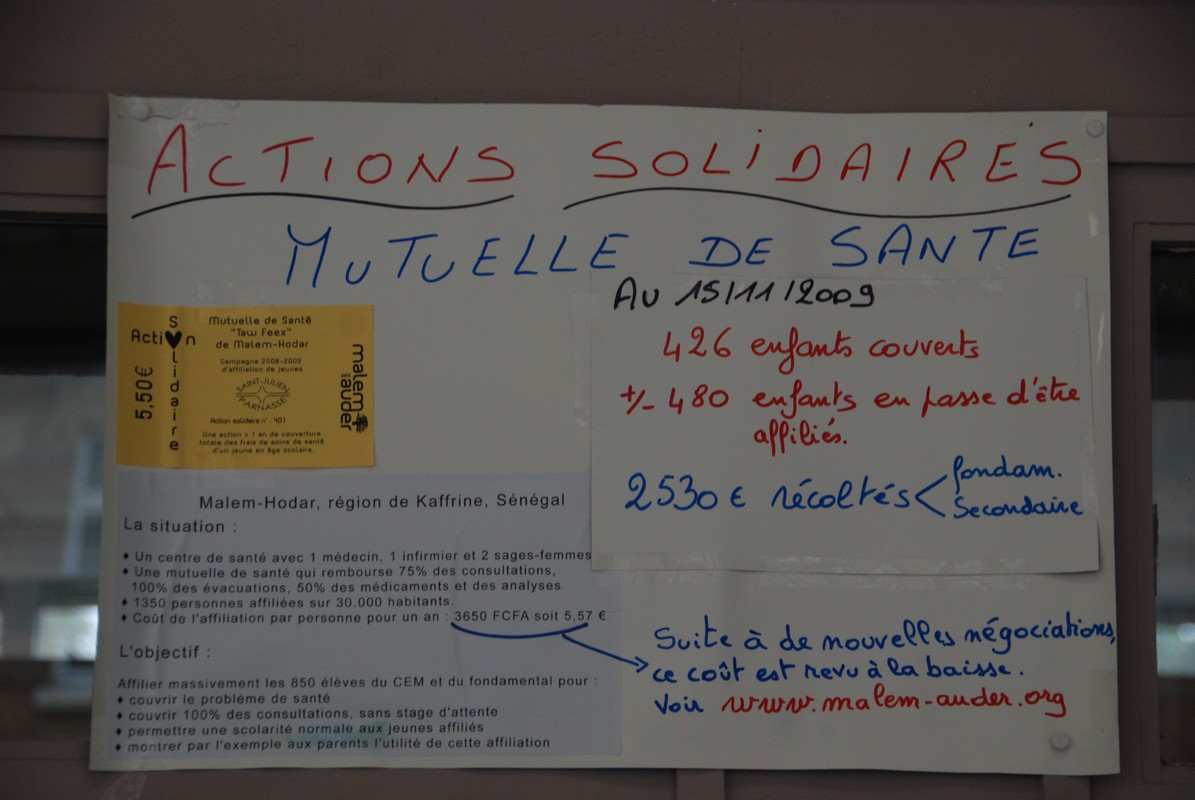 ACTIONS SOLIDAIRES
MUTUELLE DE SANTE
Acti♥n
Solidaire
5,50€
Mutuelle de Santé
"Taw Feex"
de Malem-Hodar
Campagne 2008-2009
d'affiliation de jeunes
SAINT-JULIEN
PARNASSE
Action solidaire n° : 401
Une action = 1 an de couverture
totale des frais de soins de santé
d'un jeune en âge scolaire.
malem
auder
AU 15/11/2009
426 enfants couverts
+/- 480 enfants en passe d'être
affiliés.
2530 € récoltés < fondam.
Secondaire
Malem-Hodar, région de Kaffrine, Sénégal
La situation :
♦ Un centre de santé avec 1 médecin, 1 infirmier et 2 sages-femmes
♦ Une mutuelle de santé qui rembourse 75% des consultations,
100% des évacuations, 50% des médicaments et des analyses
♦ 1350 personnes affiliées sur 30.000 habitants.
♦ Coût de l'affiliation par personne pour un an : 3650 FCFA soit 5,57 €
L'objectif :
Affilier massivement les 850 élèves du CEM et du fondamental pour :
♦ couvrir le problème de santé
♦ couvrir 100% des consultations, sans stage d'attente
♦ permettre une scolarité normale aux jeunes affiliés
♦ montrer par l'exemple aux parents l'utilité de cette affiliation
Suite à de nouvelles négociations,
ce coût est revu à la baisse.
Voir www.malem-auder.org